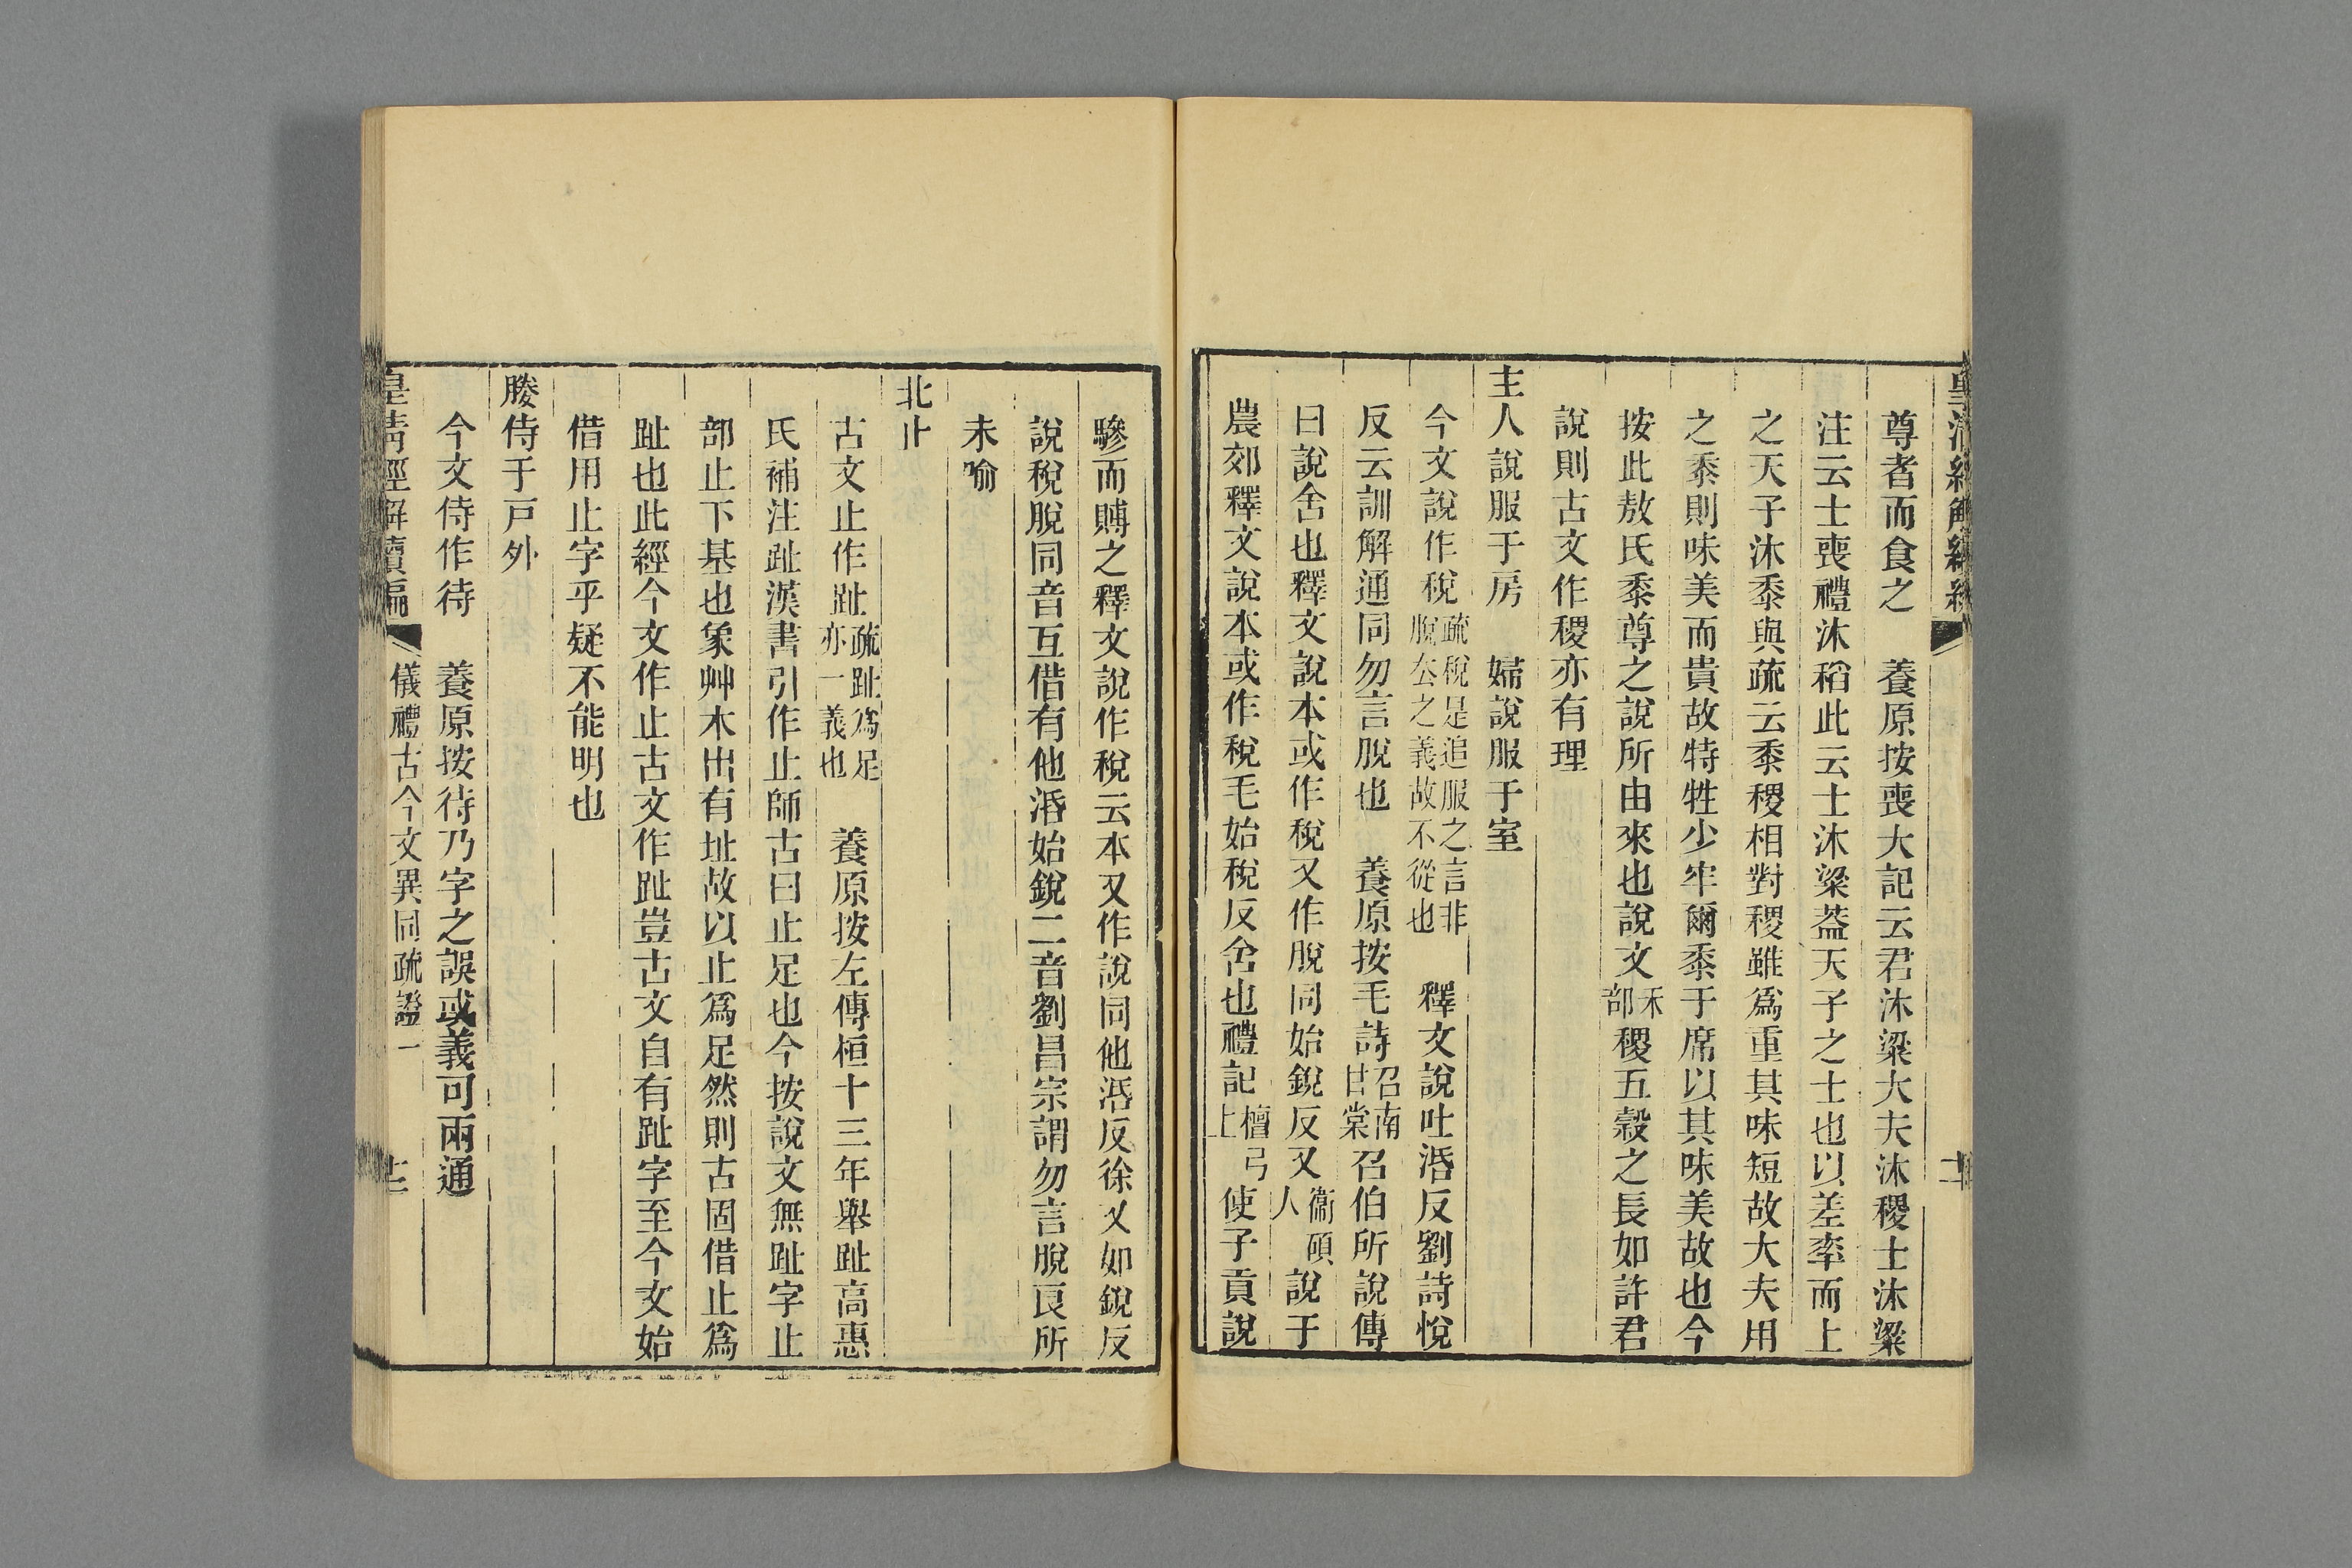 尊者而食之　養原按喪大記云君沐粱大夫沐稷士沐粱
注云士喪禮沐稻此云士沐粱葢天子之士也以差率而上
之天子沐黍與疏云黍稷相對稷雖爲重其味短故大夫用
之黍則味美而貴故特牲少牢爾黍于席以其味美故也今
按此敖氏黍尊之說所由來也說文禾部稷五穀之長如許君
說則古文作稷亦有理
主人說服于房　婦說服于室
今文說作稅疏稅是追服之言非脫去之義故不從也　釋文說吐湣反劉詩悅
反云訓解通同勿言脫也　養原按毛詩召南甘棠召伯所說傳
曰說舍也釋文說本或作稅又作脫同始銳反又衞碩人說于
農郊釋文說本或作稅毛始稅反舍也禮記檀弓上使子貢說
驂而賻之釋文說作稅云本又作說同他湣反徐又如銳反
說稅脫同音互借有他湣始銳二音劉昌宗謂勿言脫艮所
未喻
北止
古文止作趾疏趾爲足亦一義也　養原按左傳桓十三年舉趾高惠
氏補注趾漢書引作止師古曰止足也今按說文無趾字止
部止下基也象艸木出有址故以止爲足然則古固借止爲
趾也此經今文作止古文作趾豈古文自有趾字至今文始
借用止字乎疑不能明也
媵侍于戸外
今文侍作待　養原按待乃字之誤或義可兩通
皇清經解續編　儀禮古今文異同疏證一